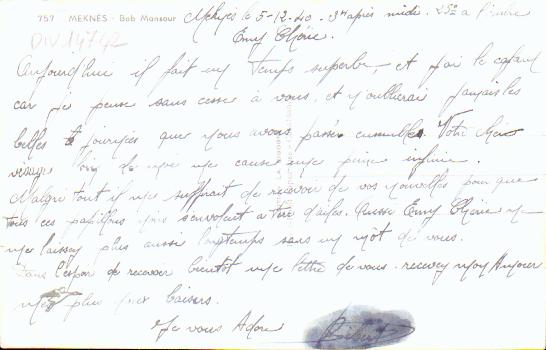 757 MEKNÈS - Bab Mansour
DIV14742
Meknès le 5-12-40. 3h après midi. 25° à l'ombre
Emy Chérie.
Aujourd'hui il fait un temps superbe, et j'ai le cafard
car je pense sans cesse à vous, et j'oublierai jamais les
belles journées que nous avons passées ensembles. Votre cher
visage loin de me cause une peine infinie.
Malgré tout il me suffirait de recevoir de vos nouvelles pour que
tous ces papillons s'envolent à tire d'ailes. Aussi Emy Chérie ne
me laissez plus aussi longtemps sans un mot de vous.
Dans l'espoir de recevoir bientôt une lettre de vous. recevez mon Amour
mes plus doux baisers.
Je vous Adore